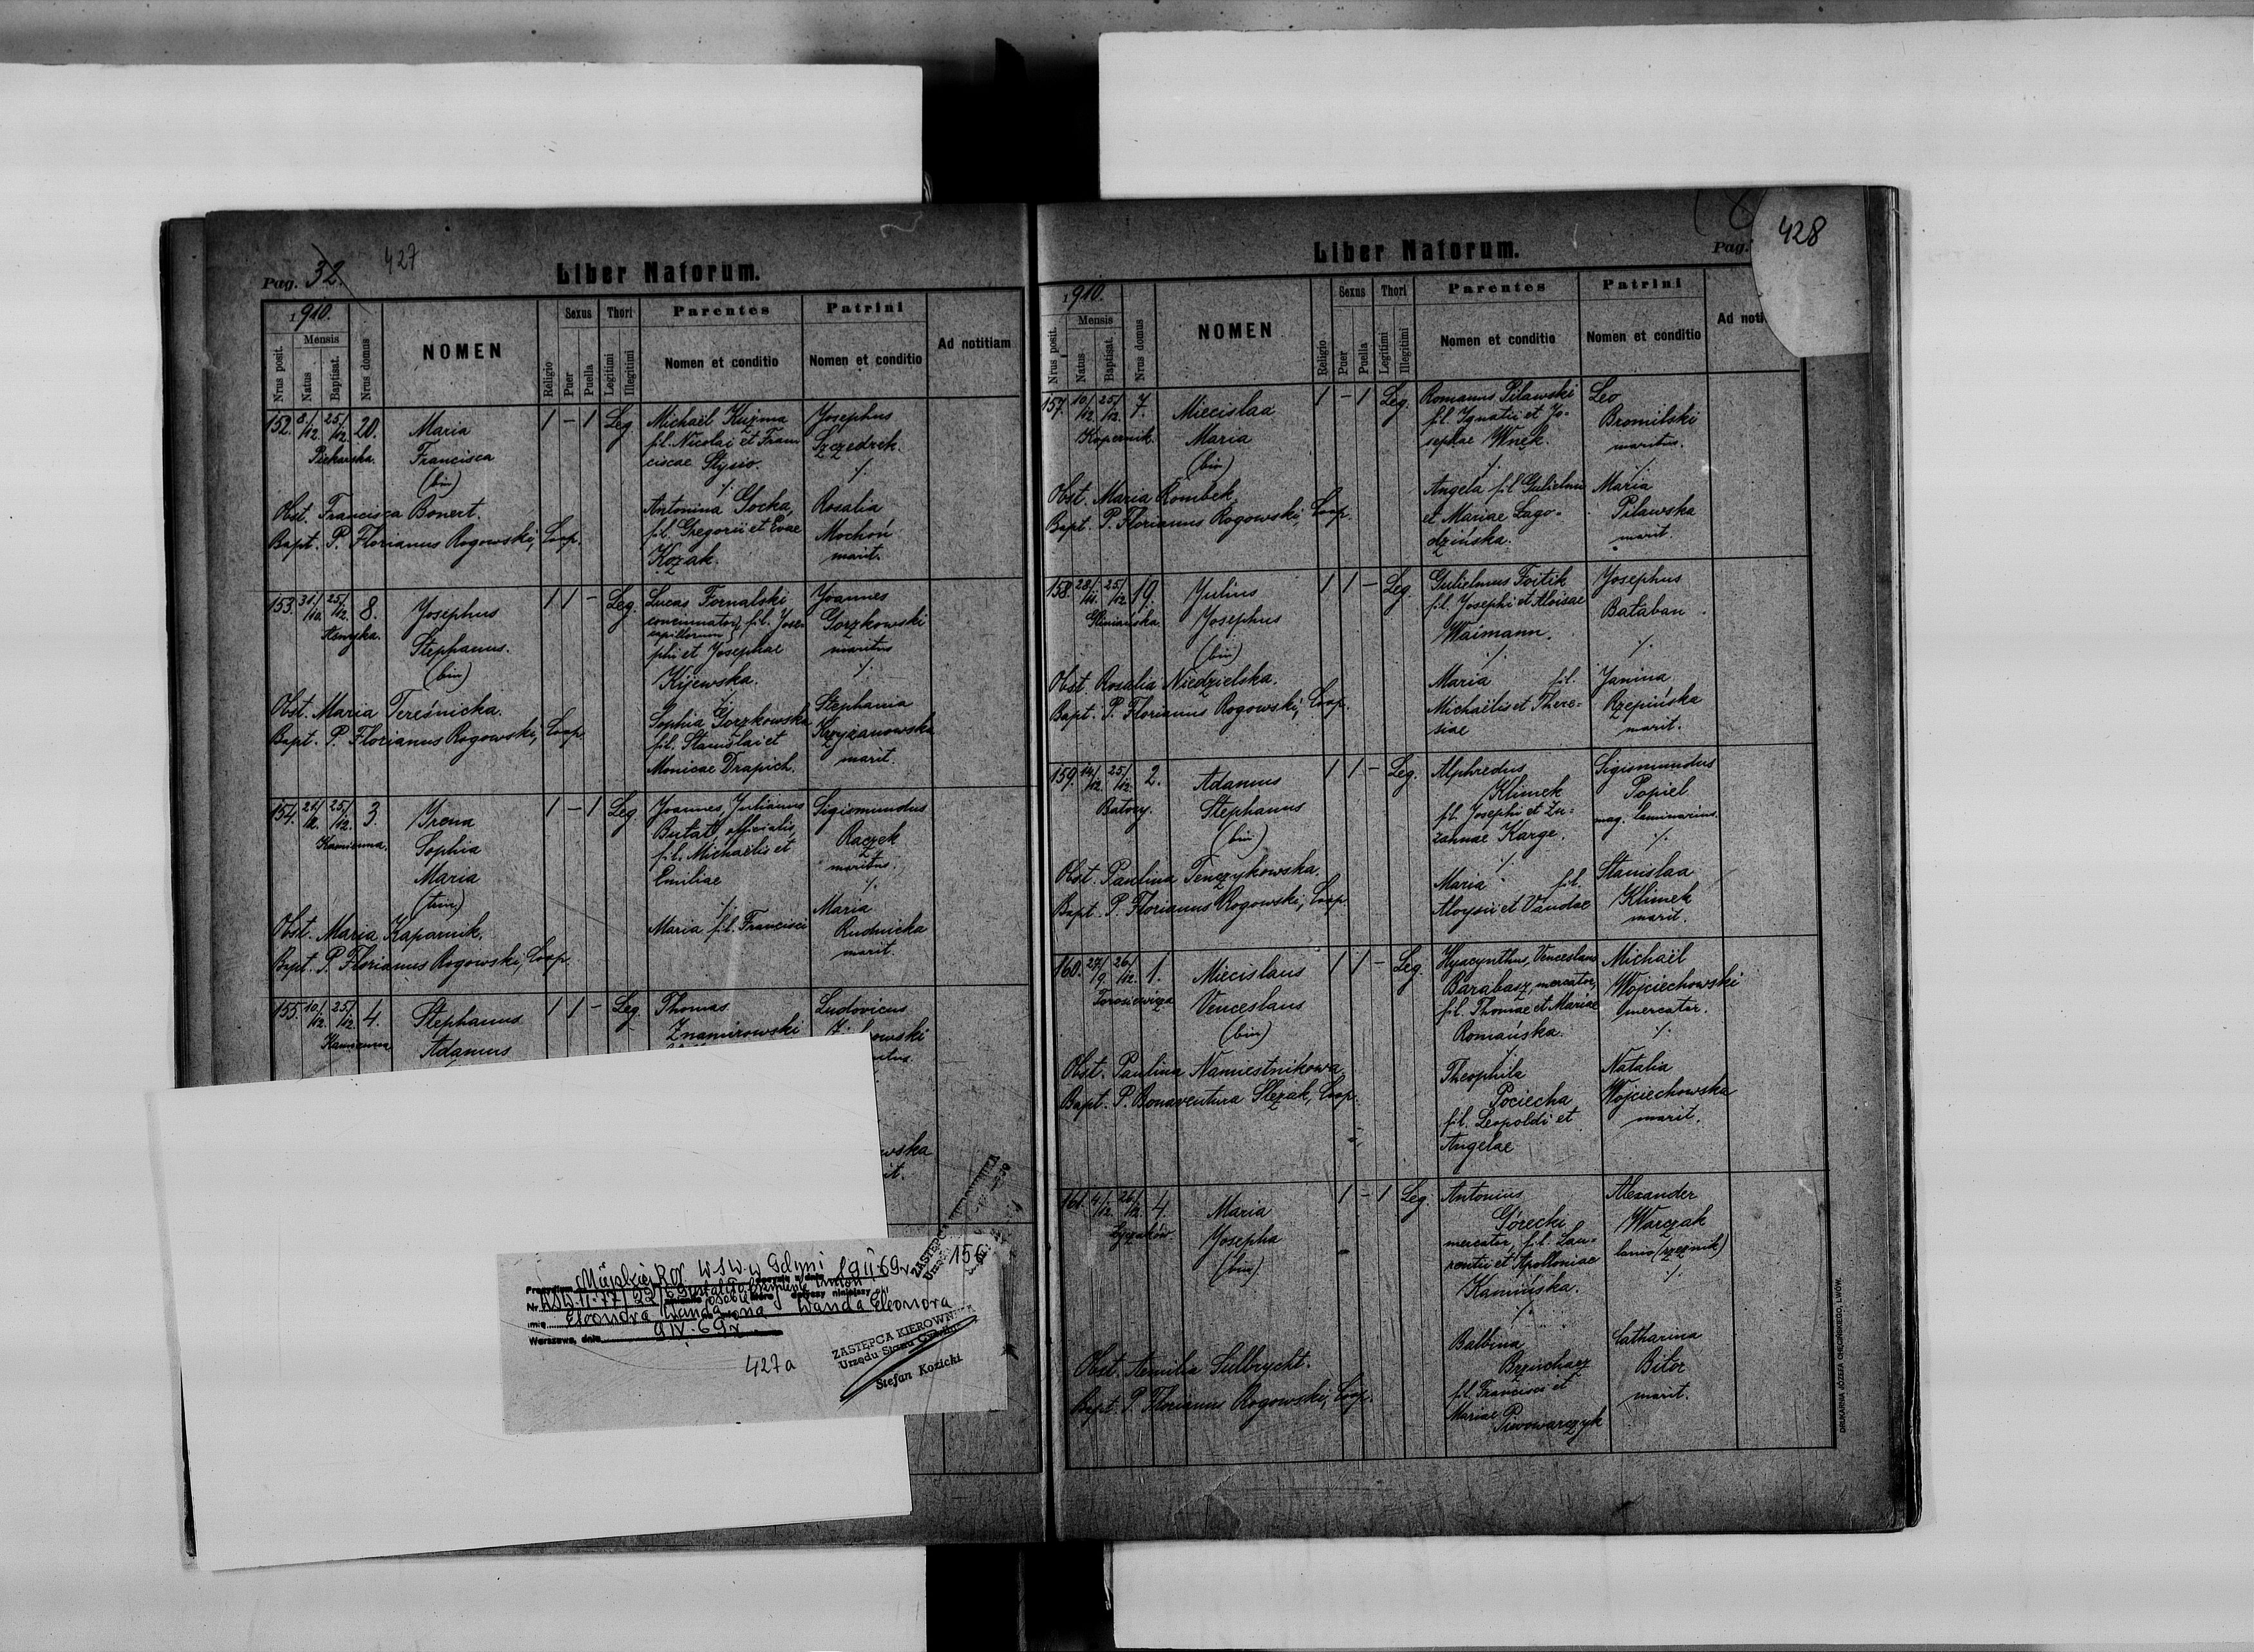 Pag. 32.
427
Liber Natorum.
1910.
Nrus posit.
Mensis
Natus
Baptisat.
Nrus domus
NOMEN
Religio
Sexus
Puer
Puella
Thori
Legitimi
Illegitimi
Parentes
Nomen et conditio
Patrini
Nomen et conditio
Ad notitiam
152. 8/12. 25/12. 20.
Piekarska.
Maria
Francisca
(bin)
1 - 1 Leg
Michaël Kuźma
fil. Nicolai et Fran
ciscae Stysio.
·/.
Antonina Gocka,
fil. Gregorii et Evae
Kozak.
Josephus
Szczedrek.
·/.
Rosalia
Mochoń
marit.
Obst. Francisca Bonert.
Bapt. P. Florianus Rogowski, Coop.
153. 31/10. 25/12. 8.
Josephus
Stephanus.
(bin)
1 1 - Leg.
Lucas Fornalski
concinnator, fil. Jose-
capillorum
phi et Josephae
Kijewska.
·/.
Sophia Gorzkowska
fil. Stanislai et
Monicae Drapich.
Joannes
Gorzkowski
maritus
·/.
Stephania
Krzyżanowska
marit.
Obst. Maria Tereśnicka.
Bapt. P. Florianus Rogowski, Coop.
154. 25/12. 3.
Kamienna.
Irena
Sophia
Maria
(trin)
1 - 1 Leg
Joannes, Julianus
Butat, officialis,
fil. Michaëlis et
Emiliae
·/.
Maria fil. Francisci
Sigismundus
Raczek
maritus
·/.
Maria
Rudnicka
marit.
Obst. Maria Kaparnik.
Bapt. P. Florianus Rogowski, Coop.
155. 10/12. 25/12. 4.
Kamienna
Stephanus
Adamus
1 1 - Leg
Thomas
Znamirowski
Ludovicus
owski
itus.
wska
it.
156
WSW w Gdyni 19 II 69r
Nr.
imię Eleonora Wanda na Wanda Eleonora
Warszawa, dnia 9 IV. 69r
427a
ZASTĘPCA KIEROWNIKA
Urzędu Stanu Cywilnego
Stefan Kozicki
Liber Natorum.
Pag.
428
1910.
Nrus posit.
Mensis
Natus.
Baptisat.
Nrus domus
NOMEN
Religio
Sexus
Puer
Puella
Thori
Legitimi
Illegitimi
Parentes
Nomen et conditio
Patrini
Nomen et conditio
Ad noti
157. 10/12. 25/12. 7.
Kopernik.
Miecislaa
Maria
(bin)
1 - 1 Leg.
Romanus Pilawski
fil. Ignatii et Jo-
sephae Wnęk.
·/.
Angela fil Gulielmi
et Mariae Lago-
dzińska.
Leo
Bromilski
maritus.
·/.
Maria
Pilawska
marit.
Obst. Maria Rombek.
Bapt. P. Florianus Rogowski, Coop.
158. 25/12 19.
Gliniańska.
Julius
Josephus
(bin)
1 1 - Leg.
Gulielmus Foitik
fil. Josephi et Aloisae
Waimann.
·/.
Maria fil.
Michaëlis et There-
siae
Josephus
Bałaban
·/.
Janina
Rzepińska
marit.
Obst. Rosalia Niedzielska.
Bapt. P. Florianus Rogowski, Coop.
159. 14/12. 25/12. 2.
Batory
Adamus
Stephanus
(bin)
1 1 - Leg.
Alphredus
Klimek
fil. Josephi et Zu-
zannae Karge.
·/.
Maria fil.
Aloysii et Vandae
Sigismundus
Popiel
mag. laminarius.
·/.
Stanislaa
Klimek
marit.
Obst. Paulina Tenczykowska.
Bapt. P. Florianus Rogowski, Coop.
160. 27/9. 26/12. 1.
Torosiewicza
Miecislaus
Venceslaus
(bin)
1 1 - Leg.
Hyacynthus, Venceslaus
Barabasz, mercator,
fil. Thomae et Mariae
Romańska.
·/.
Theophila
Pociecha
fil. Leopoldi et
Angelae
Michaël
Wojciechowski
mercator.
·/.
Natalia
Wojciechowska
marit.
Obst. Paulina Namiestnikowa.
Bapt. P. Bonaventura Slęzak, Coop.
161. 4/12. 26/12. 4.
Łyczaków
Maria
Josepha
(bin)
1 - 1 Leg.
Antonius
Górecki
mercator, fil. Lau-
rentii et Apolloniae
Kamińska.
·/.
Balbina
fil. Francisci et
Mariae
Piwowarczyk
Alexander
Warczak
lanio (rzeźnik)
·/.
Catharina
Bilor
marit.
Obst. Aemilia Sulbrycht.
Bapt. P. Florianus Rogowski, Coop.
DRUKARNIA JÓZEFA CHĘCIŃSKIEGO, LWÓW.